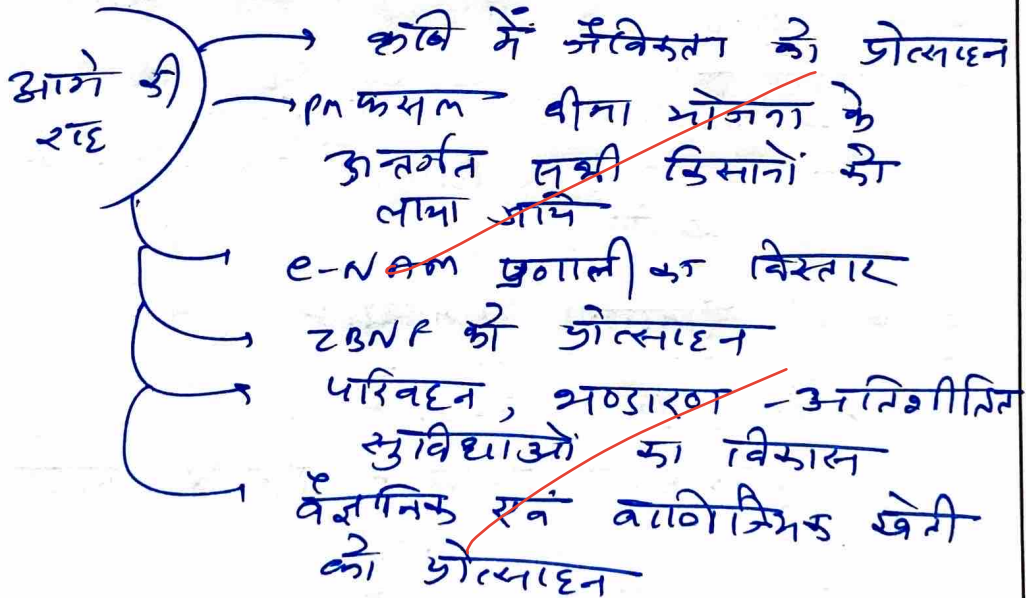 आगे की
राह
कृषि में जैविकता को प्रोत्साहन
PM फसल बीमा योजना के
अन्तर्गत सभी किसानों को
लाया जाये
e-NAM प्रणाली का विस्तार
ZBNF को प्रोत्साहन
परिवहन, भण्डारण - अतिशीतित
सुविधाओं का विकास
वैज्ञानिक एवं वाणिज्यिक खेती
को प्रोत्साहन